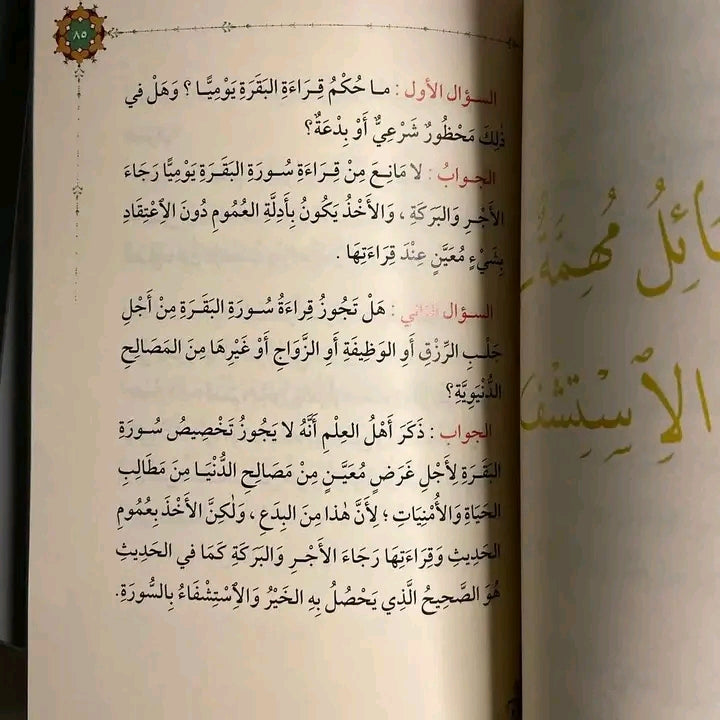 ٨٥
السؤال الأول : ما حُكْمُ قِرَاءَةِ البَقَرَةِ يَوْمِيًّا ؟ وَهَلْ في
ذٰلِكَ مَحْظُورٌ شَرْعِيٌّ أَوْ بِدْعَةٌ؟
الجوابُ : لا مَانِعَ مِنْ قِرَاءَةِ سُورَةِ البَقَرَةِ يَوْمِيًّا رَجَاءَ
الأَجْرِ وَالبَرَكَةِ ، وَالأَخْذُ يَكُونُ بِأَدِلَّةِ العُمُومِ دُونَ الاِعْتِقَادِ
بِشَيْءٍ مُعَيَّنٍ عِنْدَ قِرَاءَتِهَا .
السؤال الثاني : هَلْ تَجُوزُ قِراءَةُ سُورَةِ البَقَرَةِ مِنْ أَجْلِ
جَلْبِ الرِّزْقِ أَوِ الوَظِيفَةِ أَوِ الزَّوَاجِ أَوْ غَيْرِهَا مِنَ المَصَالِحِ
الدُّنْيَوِيَّةِ؟
الجواب : ذَكَرَ أَهْلُ العِلْمِ أَنَّهُ لا يَجُوزُ تَخْصِيصُ سُورَةِ
البَقَرَةِ لِأَجْلِ غَرَضٍ مُعَيَّنٍ مِنْ مَصَالِحِ الدُّنْيَا مِنَ مَطَالِبِ
الحَيَاةِ وَالأُمْنِيَاتِ ؛ لِأَنَّ هٰذا مِنَ البِدَعِ ، وَلٰكِنَّ الأَخْذَ بِعُمُومِ
الحَدِيثِ وَقِرَاءَتِهَا رَجَاءَ الأَجْرِ وَالبَرَكَةِ كَمَا في الحَدِيثِ
هُوَ الصَّحِيحُ الَّذِي يَحْصُلُ بِهِ الخَيْرُ وَالاِسْتِشْفَاءُ بِالسُّورَةِ.
مُهِمَّةٌ